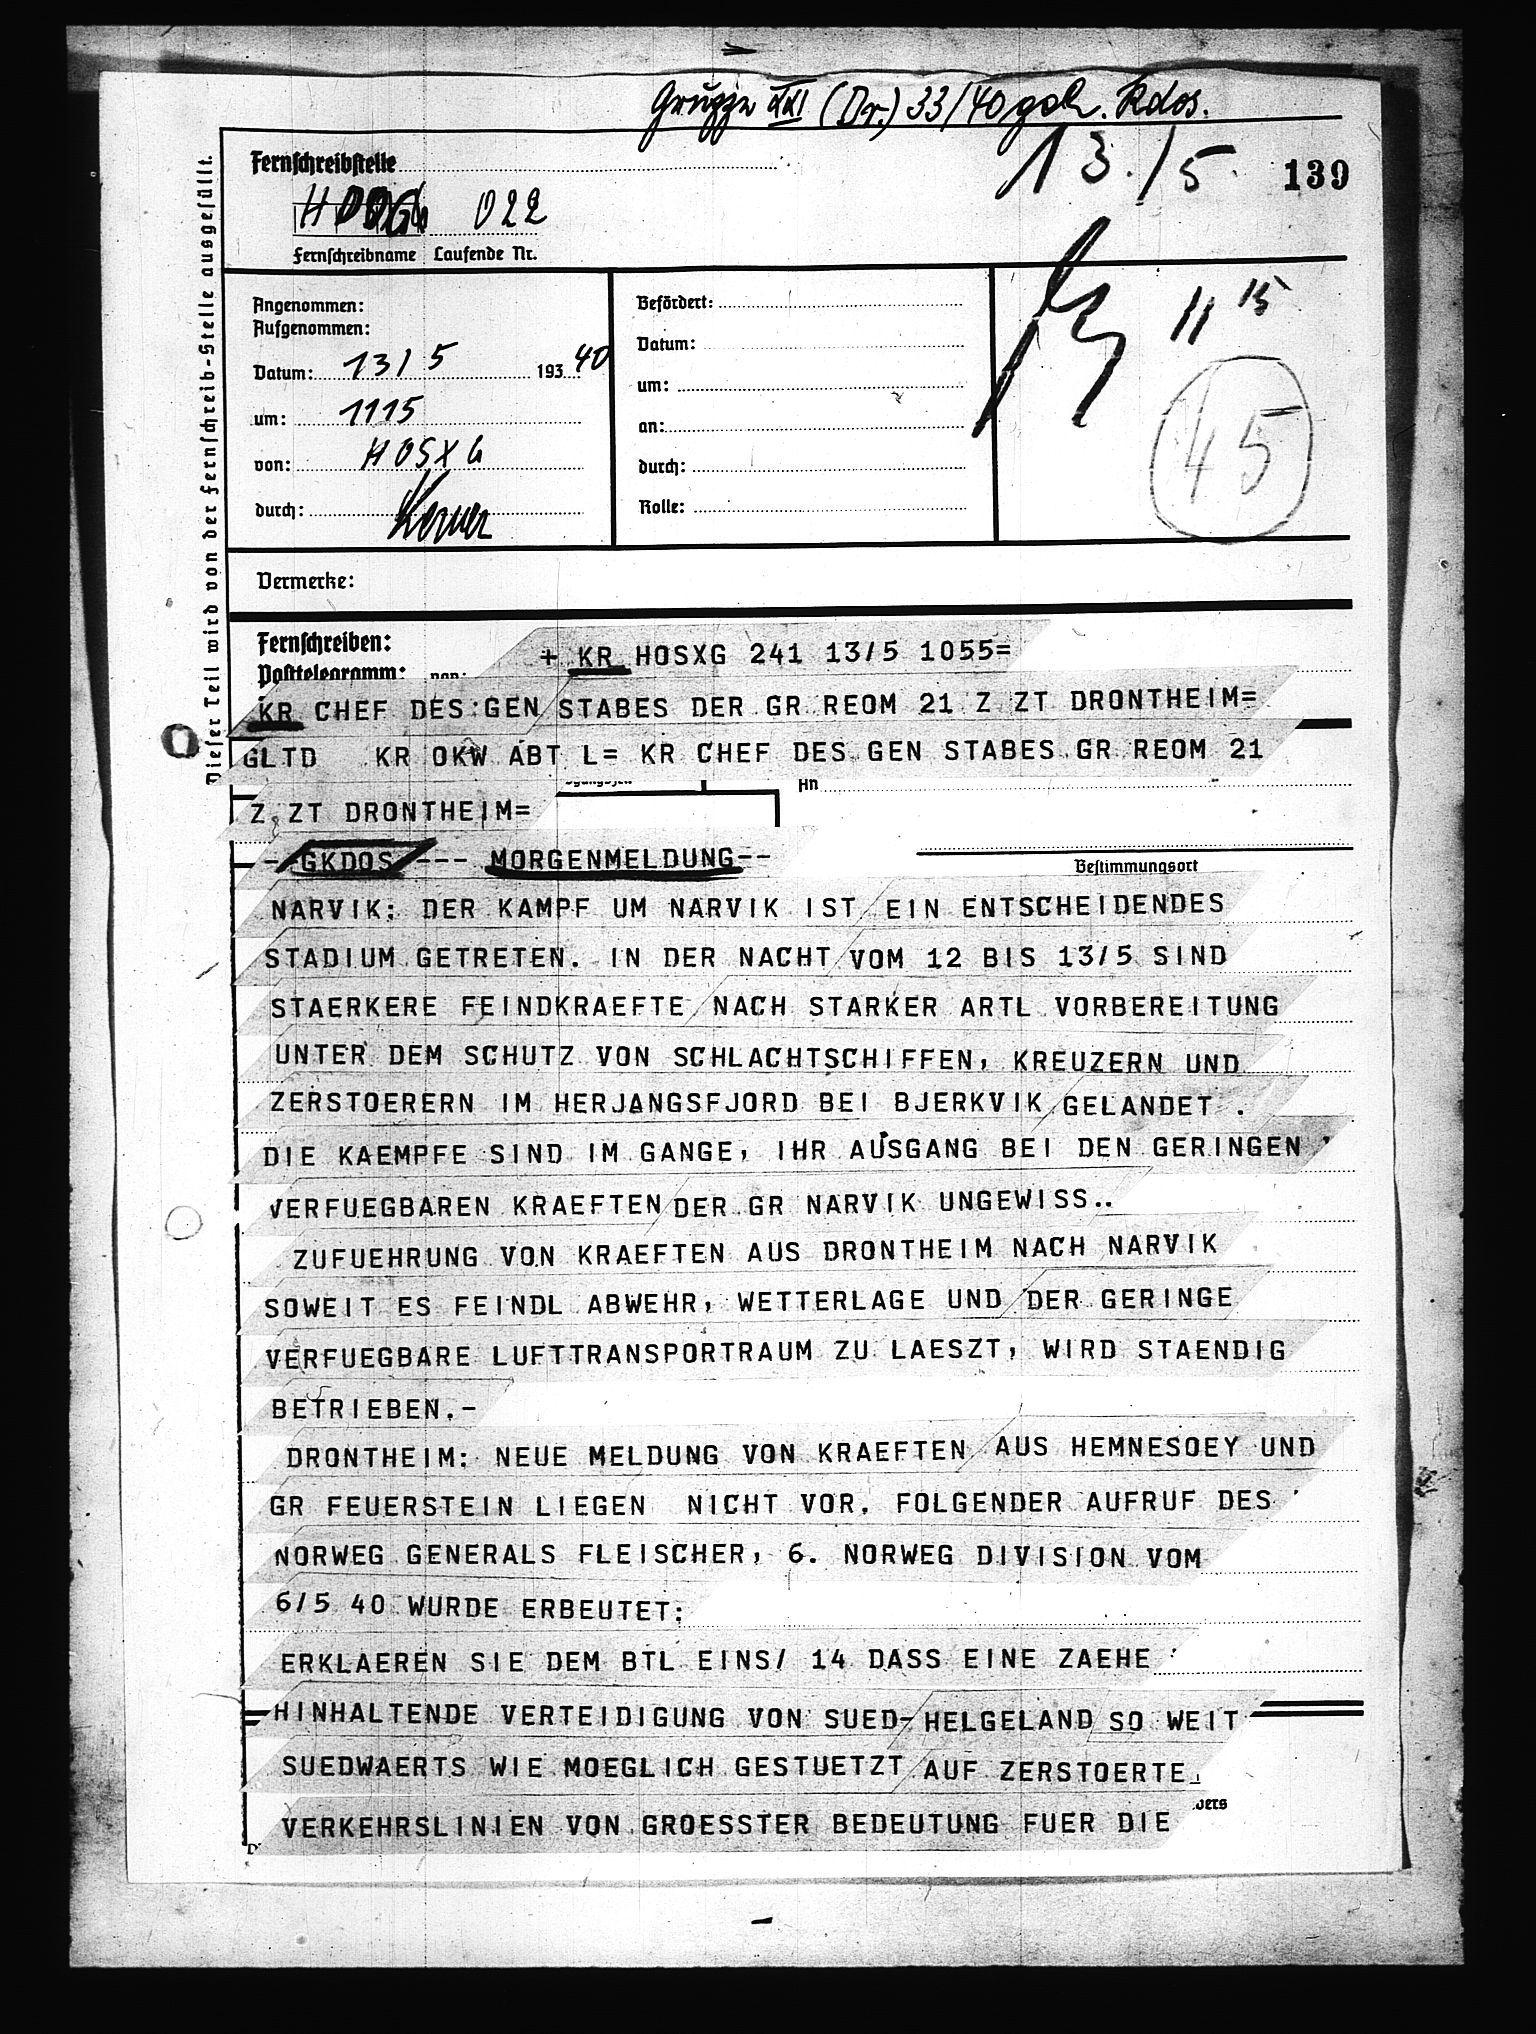 Gruppe XXI (Dr.) 33/40 gek. Kdos.
13./5. 139
Fernschreibstelle
022
Fernschreibname Laufende Nr.
Dieser Teil wird von der Fernschreib-Stelle ausgefüllt.
Angenommen:
Aufgenommen:
Datum: 13/5 193 40
um: 1115
von: HOSXG
durch:
Befördert:
Datum:
um:
an:
durch:
Rolle:
11 15
45
Vermerke:
Fernschreiben:
Posttelegramm: von:
+ KR HOSXG 241 13/5 1055=
KR CHEF DES GEN STABES DER GR REOM 21 Z ZT DRONTHEIM=
GLTD KR OKW ABT L= KR CHEF DES GEN STABES GR REOM 21
An
Z ZT DRONTHEIM=
- GKDOS --- MORGENMELDUNG--
Bestimmungsort
NARVIK: DER KAMPF UM NARVIK IST EIN ENTSCHEIDENDES
STADIUM GETRETEN. IN DER NACHT VOM 12 BIS 13/5 SIND
STAERKERE FEINDKRAEFTE NACH STARKER ARTL VORBEREITUNG
UNTER DEM SCHUTZ VON SCHLACHTSCHIFFEN, KREUZERN UND
ZERSTOERERN IM HERJANGSFJORD BEI BJERKVIK GELANDET .
DIE KAEMPFE SIND IM GANGE, IHR AUSGANG BEI DEN GERINGEN
VERFUEGBAREN KRAEFTEN DER GR NARVIK UNGEWISS..
ZUFUEHRUNG VON KRAEFTEN AUS DRONTHEIM NACH NARVIK
SOWEIT ES FEINDL ABWEHR, WETTERLAGE UND DER GERINGE
VERFUEGBARE LUFTTRANSPORTRAUM ZU LAESZT, WIRD STAENDIG
BETRIEBEN.-
DRONTHEIM: NEUE MELDUNG VON KRAEFTEN AUS HEMNESOEY UND
GR FEUERSTEIN LIEGEN NICHT VOR. FOLGENDER AUFRUF DES
NORWEG GENERALS FLEISCHER, 6. NORWEG DIVISION VOM
6/5 40 WURDE ERBEUTET:
ERKLAEREN SIE DEM BTL EINS/ 14 DASS EINE ZAEHE
HINHALTENDE VERTEIDIGUNG VON SUED- HELGELAND SO WEIT
SUEDWAERTS WIE MOEGLICH GESTUETZT AUF ZERSTOERTE
VERKEHRSLINIEN VON GROESSTER BEDEUTUNG FUER DIE